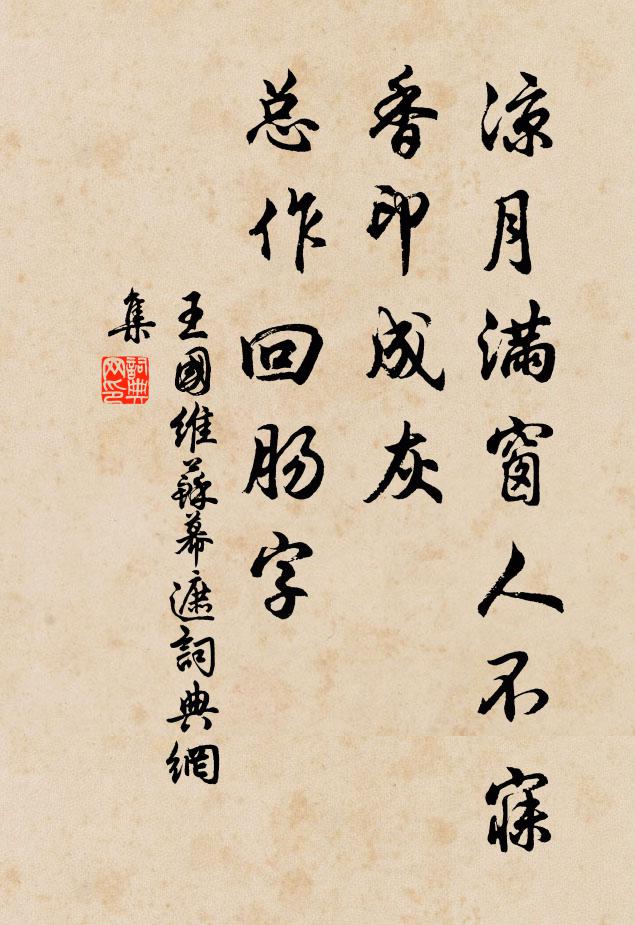 凉月满窗人不寐
香印成灰
总作回肠字
王國維蘇幕遮詞典網
集
詞典
网印